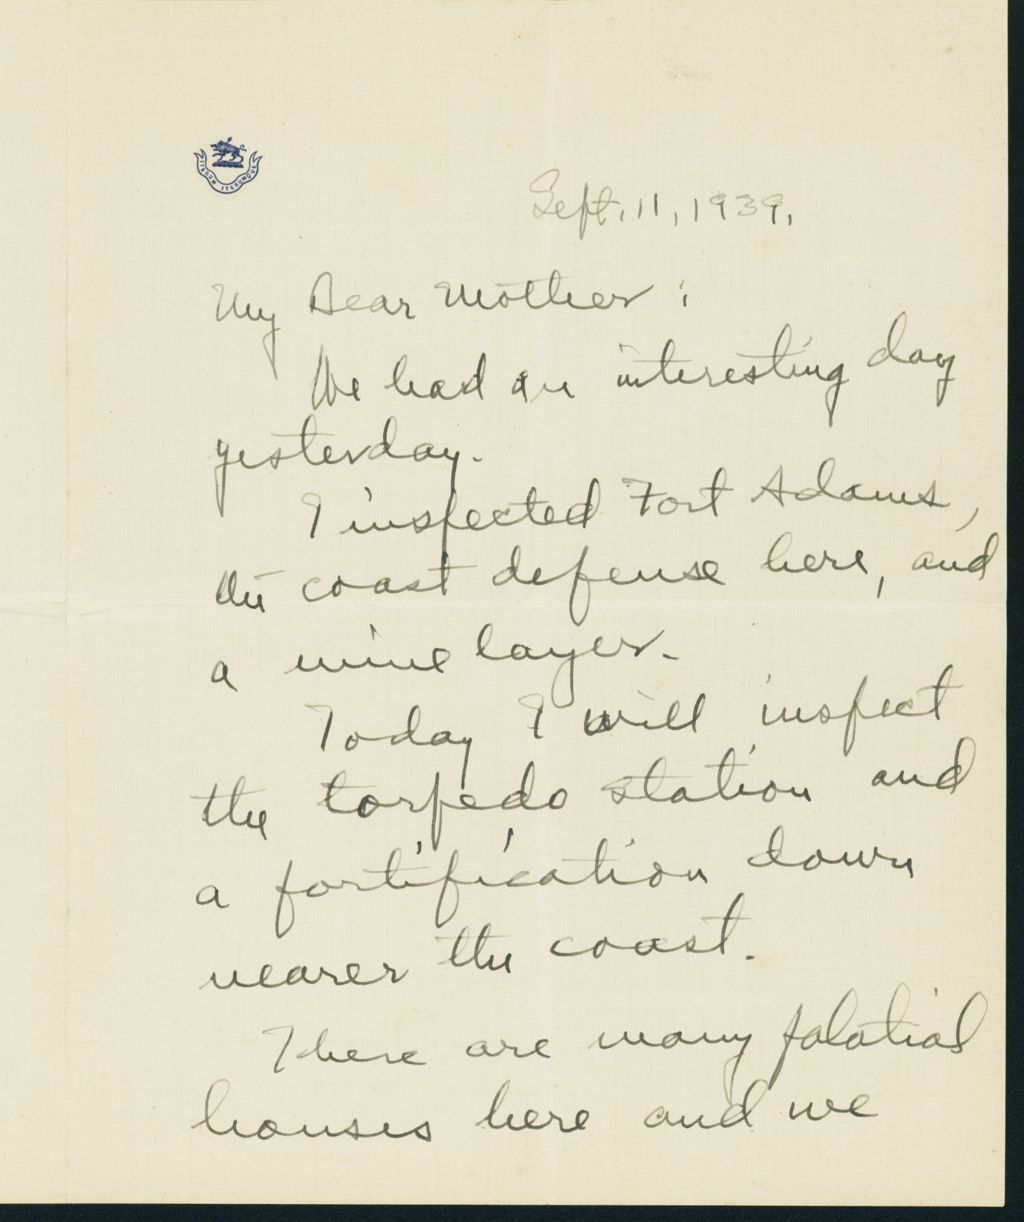 ITERUM ITERUMQUE
Sept. 11, 1939.
My Dear Mother:
We had an interesting day
yesterday.
I inspected Fort Adams,
the coast defense here, and
a mine layer.
Today I will inspect
the torpedo station and
a fortification down
nearer the coast.
There are many palatial
houses here and we